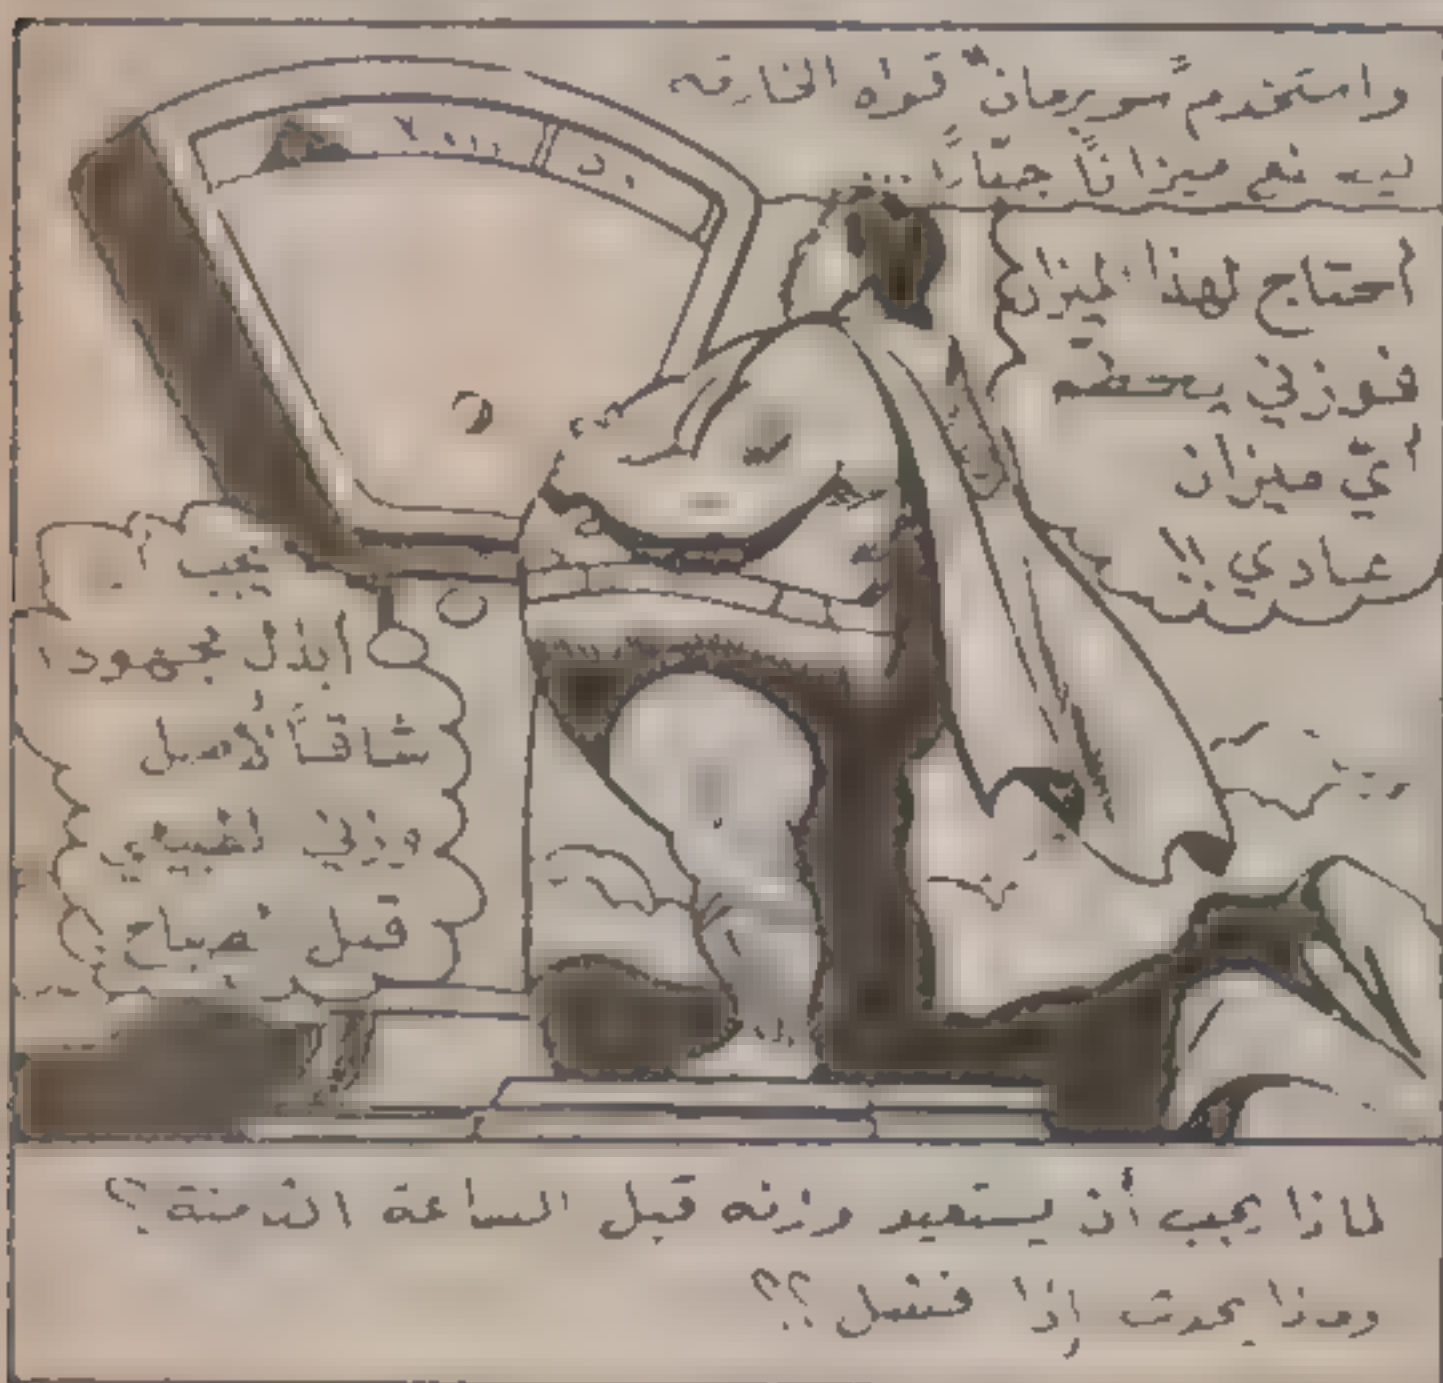 واستخدم "سوبرمان" قواه الخارقه
ليصنع ميزانًا جبّارًا...
أحتاج لهذا الميزان
فوزني يحطّم
أيّ ميزان
عادي!!
يجب أن
أبذل مجهودا
شاقاً لأصل
وزني الطبيعي
قبل الصباح!
لماذا يجب أن يستعيد وزنه قبل الساعة الثامنة؟
وماذا يحدث إذا فشل؟؟